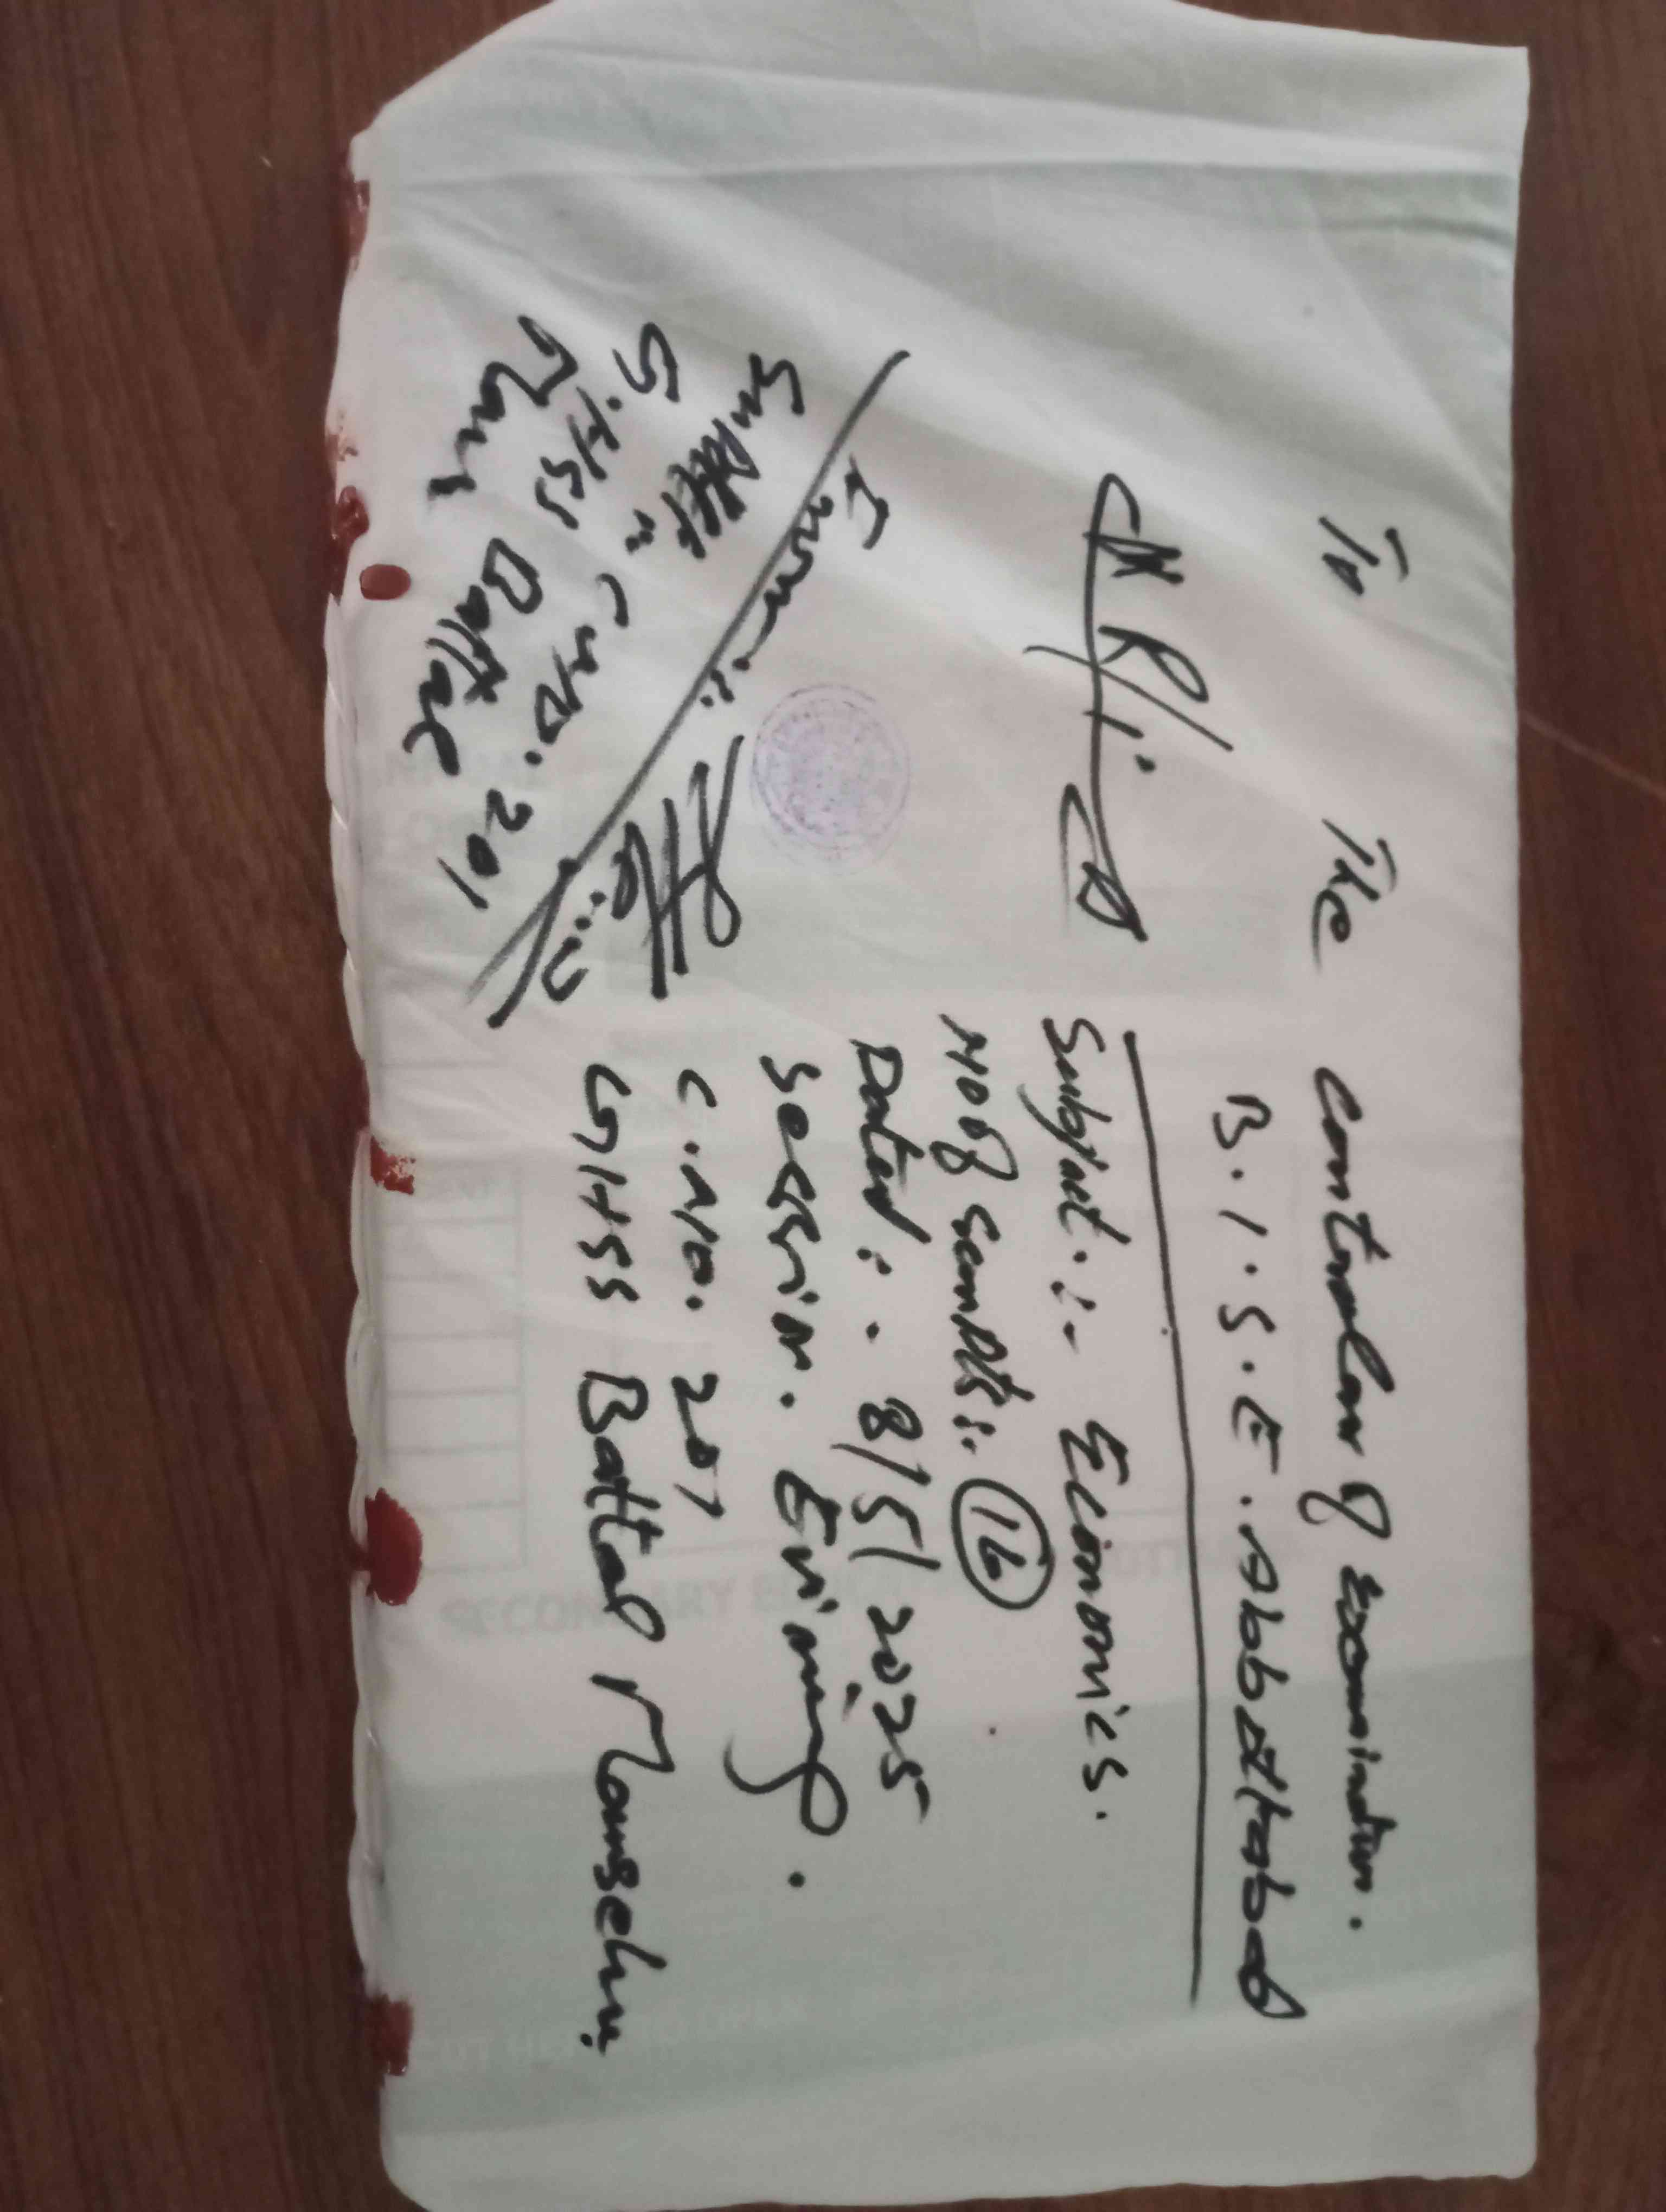 To The Controlar of Examination.
B.I.S.E. Abbottabad
Subject:- Economics.
No of scripts:. 16
Dated:. 8/5/2025
Session. Evining.
C.No. 201
GHSS Battal Mansehra
From:
Supdtt
C.No. 201
GHSS Battal